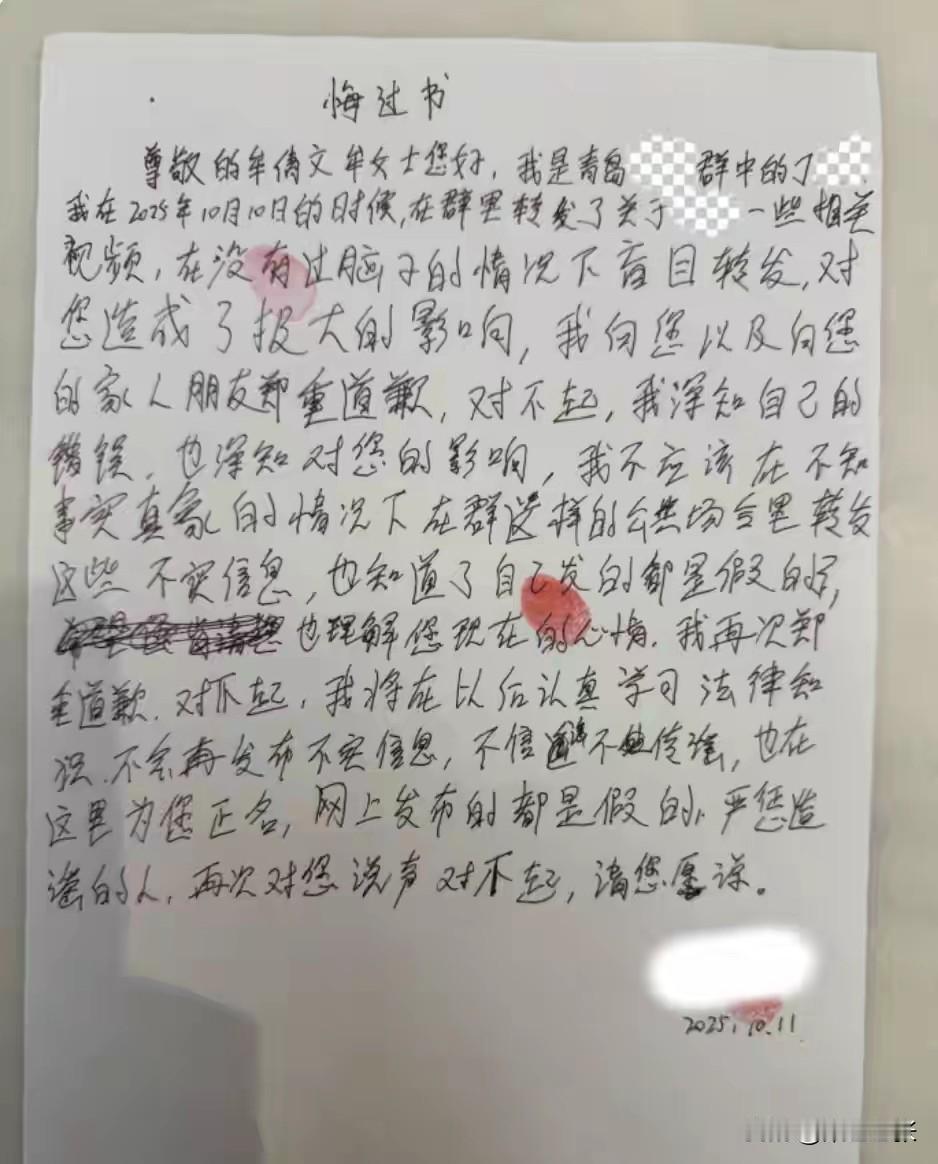 悔过书
尊敬的牟倩文牟女士您好，我是青岛 群中的丁
我在2025年10月10日的时候,在群里转发了关于 一些相关
视频，在没有过脑子的情况下盲目转发,对
您造成了极大的影响，我向您以及向您
的家人朋友郑重道歉，对不起，我深知自己的
错误，也深知对您的影响，我不应该在不知
事实真象的情况下在群这样的公共场合里转发
这些不实信息，也知道了自己发的都是假的,
也理解您现在的心情.我再次郑
重道歉.对不起，我将在以后认真学习法律知
识.不会再发布不实信息，不信 不 传谣，也在
这里为您正名，网上发布的都是假的,严惩造
谣的人,再次对您说声对不起，请您原谅。
2025.10.11